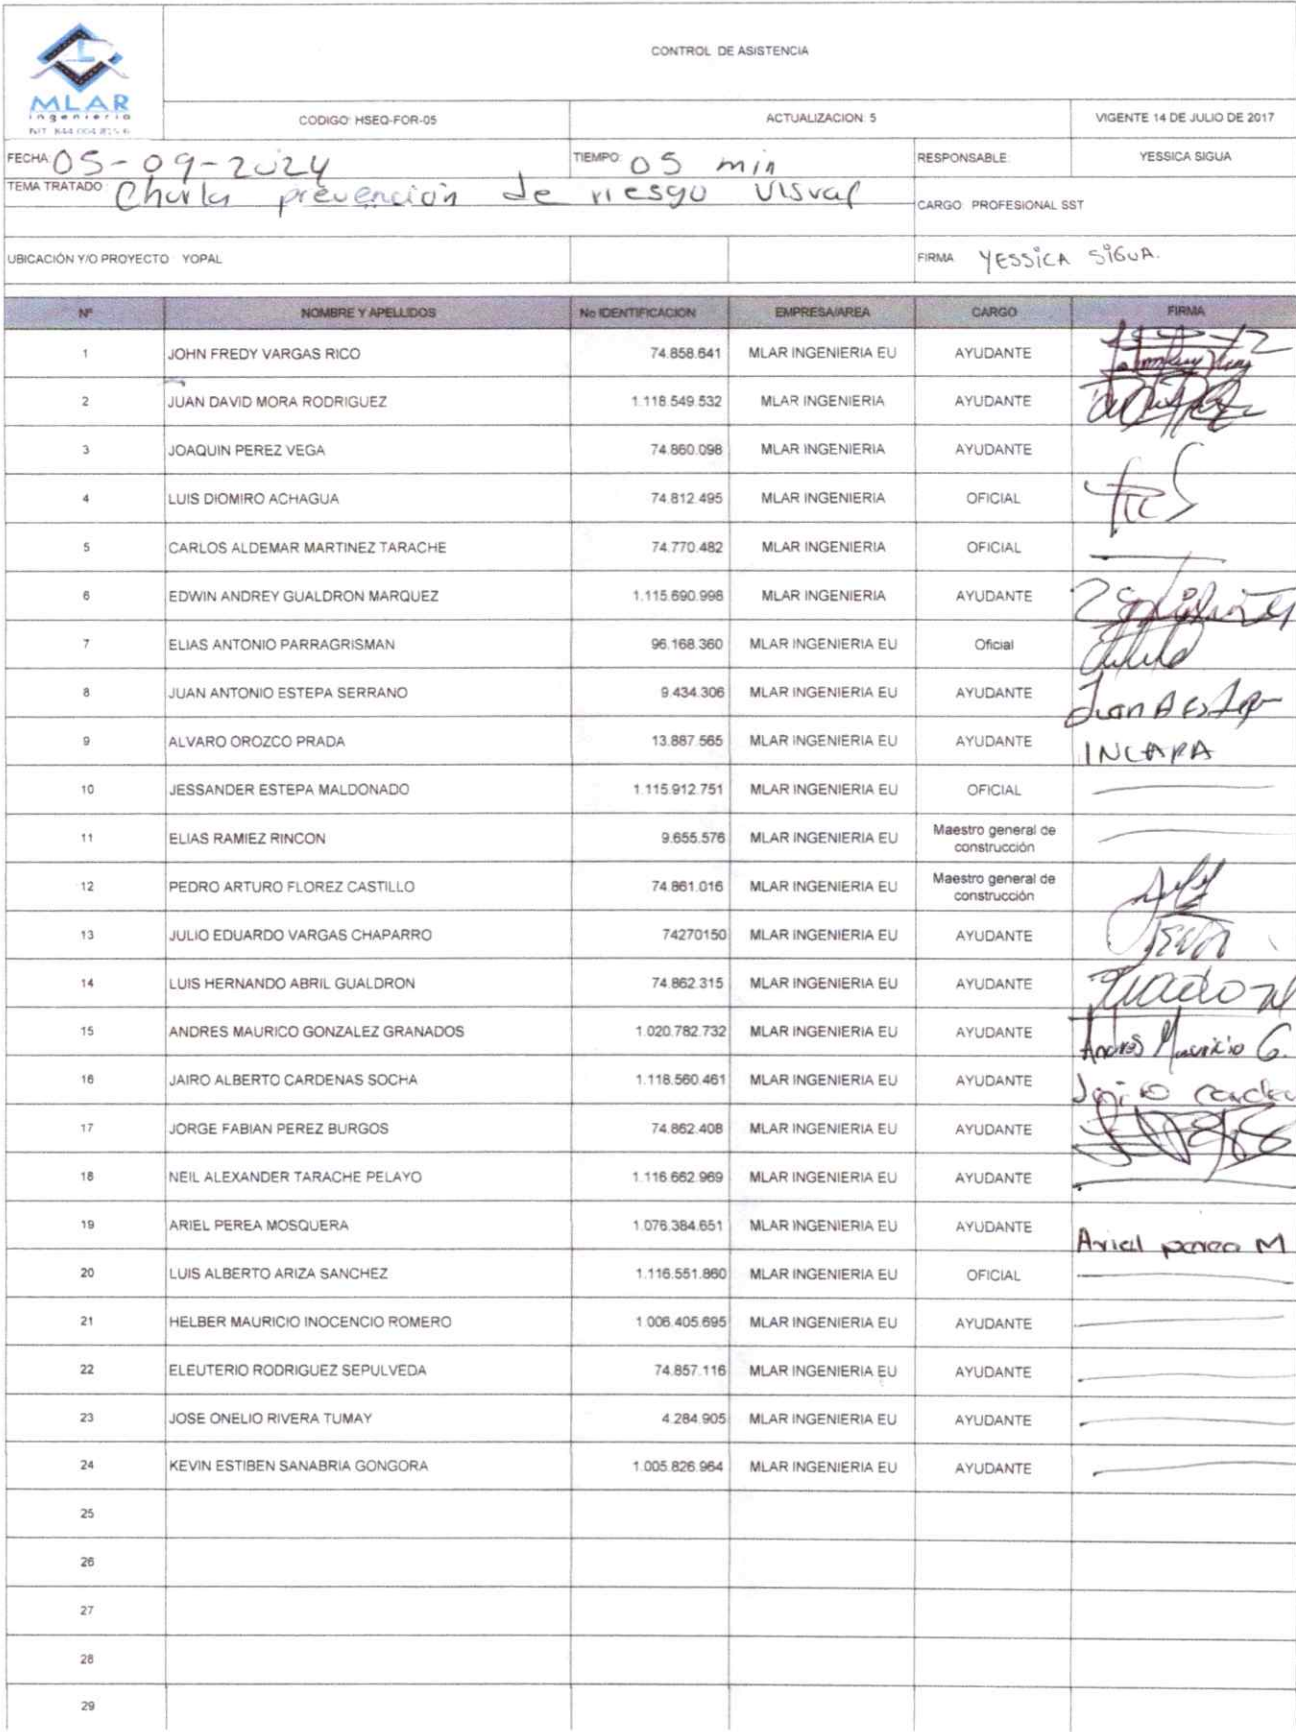 CONTROL DE ASISTENCIA
MLAR
ingeniería
NIT 844.004.815-6
CODIGO: HSEQ-FOR-05 ACTUALIZACION: 5 VIGENTE 14 DE JULIO DE 2017
FECHA: 05-09-2024 TIEMPO: 05 min RESPONSABLE: YESSICA SIGUA
TEMA TRATADO: Charla prevención de riesgo visual
CARGO: PROFESIONAL SST
UBICACIÓN Y/O PROYECTO YOPAL FIRMA YESSICA SIGUA.
Nº NOMBRE Y APELLIDOS No IDENTIFICACION EMPRESA/AREA CARGO FIRMA
1 JOHN FREDY VARGAS RICO 74.858.641 MLAR INGENIERIA EU AYUDANTE
2 JUAN DAVID MORA RODRIGUEZ 1.118.549.532 MLAR INGENIERIA AYUDANTE
3 JOAQUIN PEREZ VEGA 74.860.098 MLAR INGENIERIA AYUDANTE
4 LUIS DIOMIRO ACHAGUA 74.812.495 MLAR INGENIERIA OFICIAL
5 CARLOS ALDEMAR MARTINEZ TARACHE 74.770.482 MLAR INGENIERIA OFICIAL
6 EDWIN ANDREY GUALDRON MARQUEZ 1.115.690.998 MLAR INGENIERIA AYUDANTE
7 ELIAS ANTONIO PARRAGRISMAN 96.168.360 MLAR INGENIERIA EU Oficial
8 JUAN ANTONIO ESTEPA SERRANO 9.434.306 MLAR INGENIERIA EU AYUDANTE Juan A Estepa
9 ALVARO OROZCO PRADA 13.887.565 MLAR INGENIERIA EU AYUDANTE INCAPA
10 JESSANDER ESTEPA MALDONADO 1.115.912.751 MLAR INGENIERIA EU OFICIAL
11 ELIAS RAMIEZ RINCON 9.655.576 MLAR INGENIERIA EU Maestro general de construcción
12 PEDRO ARTURO FLOREZ CASTILLO 74.861.016 MLAR INGENIERIA EU Maestro general de construcción
13 JULIO EDUARDO VARGAS CHAPARRO 74270150 MLAR INGENIERIA EU AYUDANTE
14 LUIS HERNANDO ABRIL GUALDRON 74.862.315 MLAR INGENIERIA EU AYUDANTE
15 ANDRES MAURICO GONZALEZ GRANADOS 1.020.782.732 MLAR INGENIERIA EU AYUDANTE Andres Mauricio G.
16 JAIRO ALBERTO CARDENAS SOCHA 1.118.560.461 MLAR INGENIERIA EU AYUDANTE
17 JORGE FABIAN PEREZ BURGOS 74.862.408 MLAR INGENIERIA EU AYUDANTE
18 NEIL ALEXANDER TARACHE PELAYO 1.116.662.969 MLAR INGENIERIA EU AYUDANTE
19 ARIEL PEREA MOSQUERA 1.076.384.651 MLAR INGENIERIA EU AYUDANTE Ariel perea M
20 LUIS ALBERTO ARIZA SANCHEZ 1.116.551.860 MLAR INGENIERIA EU OFICIAL
21 HELBER MAURICIO INOCENCIO ROMERO 1.006.405.695 MLAR INGENIERIA EU AYUDANTE
22 ELEUTERIO RODRIGUEZ SEPULVEDA 74.857.116 MLAR INGENIERIA EU AYUDANTE
23 JOSE ONELIO RIVERA TUMAY 4.284.905 MLAR INGENIERIA EU AYUDANTE
24 KEVIN ESTIBEN SANABRIA GONGORA 1.005.826.964 MLAR INGENIERIA EU AYUDANTE
25
26
27
28
29